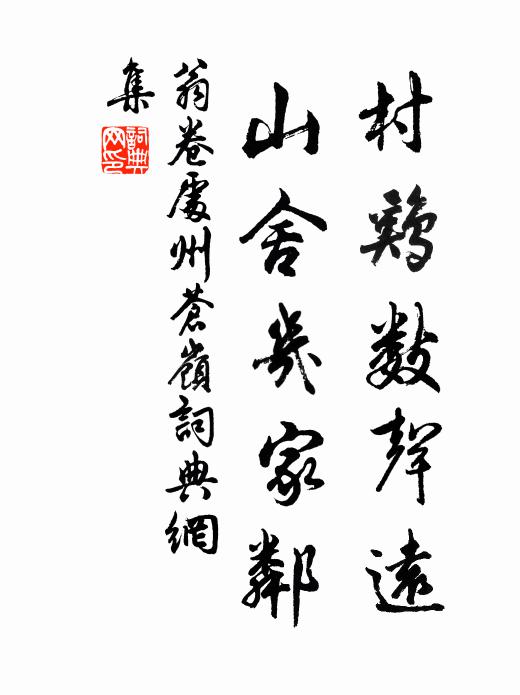 村鷄數聲遠
山舍幾家鄰
翁卷處州蒼嶺詞典網
集
詞典網印